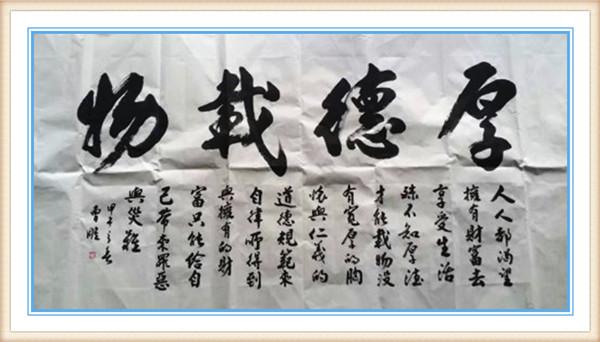 厚德載物
人人都渴望
擁有財富去
享受生活
殊不知厚德
才能載物没
有寬厚的胸
懷與仁義的
道德規範來
自律所得到
與擁有的財
富只能给自
己带来罪惡
與災難
甲午之春
曹